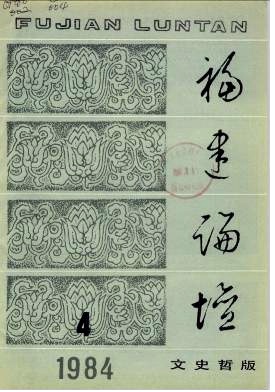 FUJIAN LUNTAN
福建论坛
4
1984
文史哲版